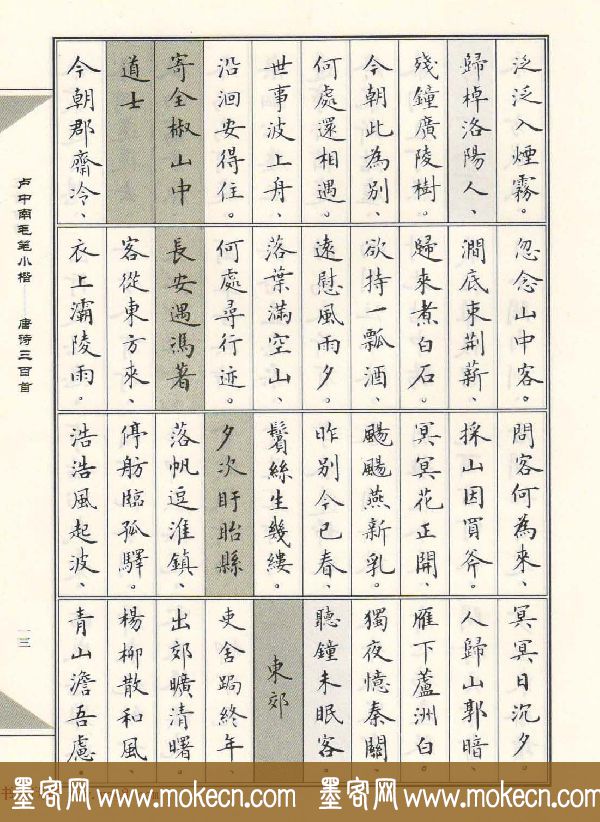 泛泛入煙霧。
歸棹洛陽人、
殘鐘廣陵樹。
今朝此為別、
何處還相遇。
世事波上舟、
沿洄安得住。
寄全椒山中
道士
今朝郡齋冷、
忽念山中客。
澗底束荊薪、
歸來煮白石。
欲持一瓢酒、
遠慰風雨夕。
落葉滿空山、
何處尋行迹。
長安遇馮著
客從東方來、
衣上灞陵雨。
問客何為來、
採山因買斧。
冥冥花正開、
颺颺燕新乳。
昨別今已春、
鬢絲生幾縷。
夕次盱眙縣
落帆逗淮鎮、
停舫臨孤驛。
浩浩風起波、
冥冥日沉夕。
人歸山郭暗、
雁下蘆洲白。
獨夜憶秦關、
聽鐘未眠客。
東郊
吏舍跼終年、
出郊曠清曙。
楊柳散和風、
青山澹吾慮。
卢中南毛笔小楷——唐诗三百首
一三
墨客网 www.mokecn.com 墨客网 www.mokecn.com
书